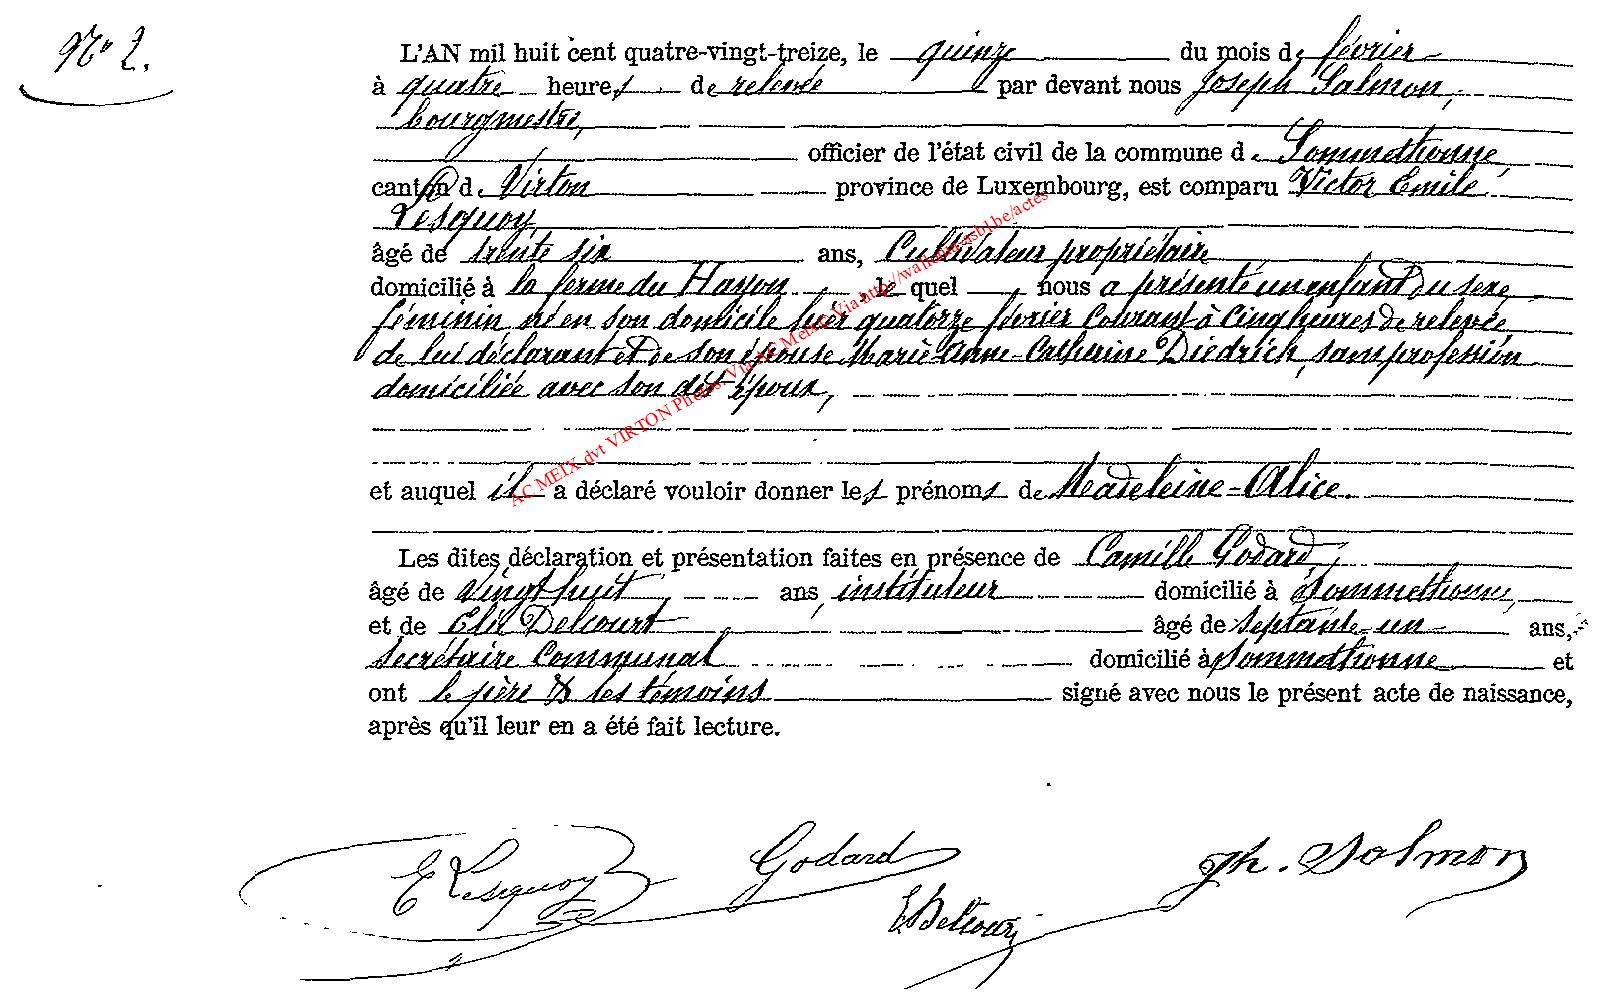 No 2.
L'AN mil huit cent quatre-vingt-treize, le quinze du mois de février
à quatre heures de relevée par devant nous Joseph Salmon,
bourgmestre,
officier de l'état civil de la commune de Sommethonne
canton de Virton province de Luxembourg, est comparu Victor Emile
Lesquoy,
âgé de trente six ans, Cultivateur propriétaire
domicilié à la ferme du Hayon le quel nous a présenté un enfant du sexe
féminin né en son domicile hier quatorze février courant à cinq heures de relevée
de lui déclarant et de son épouse Marie-Anne-Catherine Diedrich, sans profession
domiciliée avec son dit époux,
et auquel il a déclaré vouloir donner les prénoms de Madeleine-Alice.
Les dites déclaration et présentation faites en présence de Camille Godard,
âgé de vingt huit ans, instituteur domicilié à Sommethonne,
et de Eloi Delcourt âgé de septante-un ans,
secrétaire communal domicilié à Sommethonne et
ont le père & les témoins signé avec nous le présent acte de naissance,
après qu'il leur en a été fait lecture.
E Lesquoy Godard Jh. Salmon
E Delcourt
AC MEIX dvt VIRTON Photos Via AC Meix & Via http://wallonia-asbl.be/actes